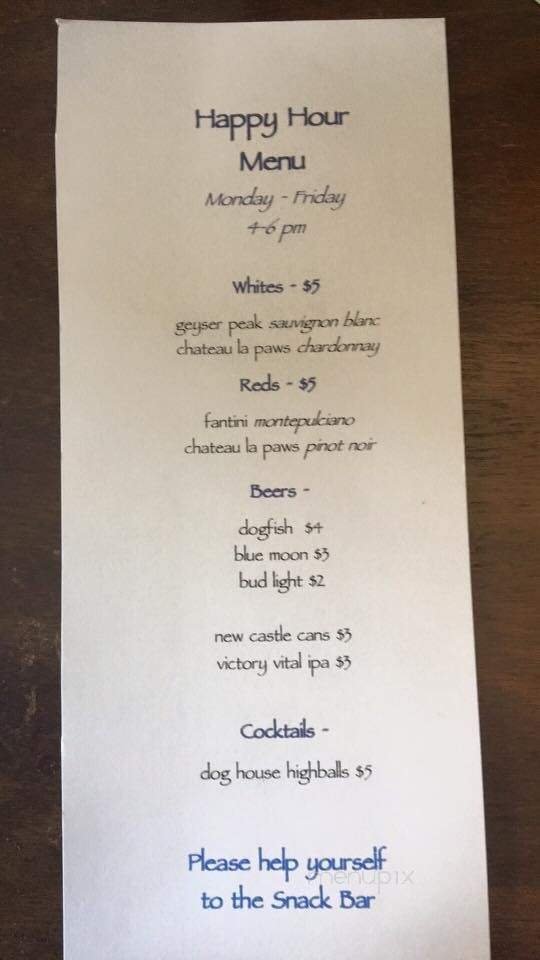 Happy Hour
Menu
Monday - Friday
4-6 pm
Whites - $5
geyser peak sauvignon blanc
chateau la paws chardonnay
Reds - $5
fantini montepulciano
chateau la paws pinot noir
Beers -
dogfish $4
blue moon $3
bud light $2
new castle cans $3
victory vital ipa $3
Cocktails -
dog house highballs $5
Please help yourself
to the Snack Bar
menupix